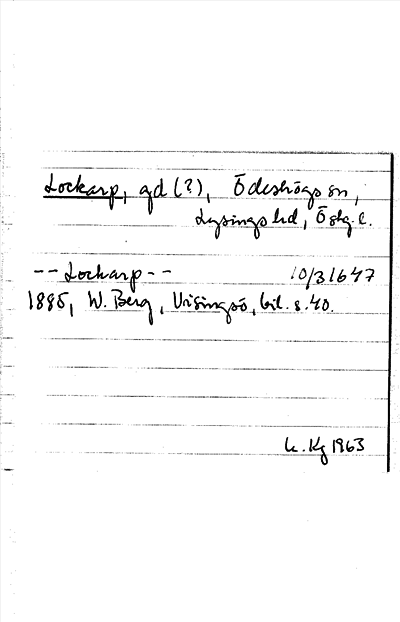 Lockarp, gd (?), Ödeshögs sn,
Lysings hd, Östg. l.
-- Lockarp -- 10/3 1647
1885, W. Berg, Visingsö, bil. s. 40.
K. Kg 1963